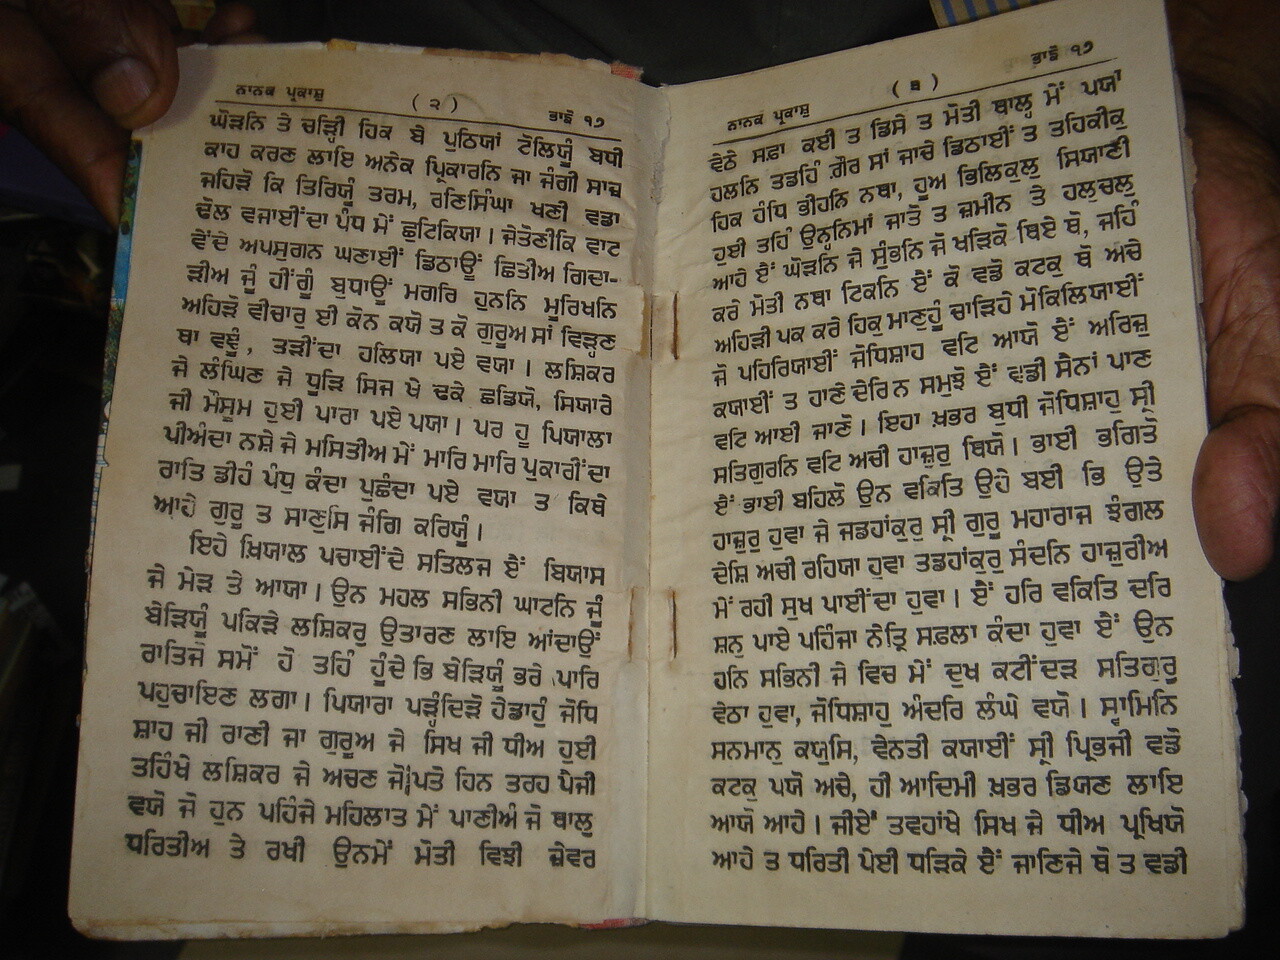 ਨਾਨਕ ਪ੍ਰਕਾਸ਼ੁ
( ੨ )
ਭਾਙੋ ੧੭
ਘੋੜਨਿ ਤੇ ਚੜ੍ਹੀ ਹਿਕ ਬੇ ਪੁਠਿਯਾਂ ਟੋਲਿਯੂੰ ਬਧੀ
ਕਾਹ ਕਰਣ ਲਾਇ ਅਨੇਕ ਪ੍ਰਿਕਾਰਨਿ ਜਾ ਜੰਗੀ ਸਾਜ਼
ਜਹਿੜੋ ਕਿ ਤਿਰਿਯੂੰ ਤਰਮ, ਰਣਿਸਿੰਘਾ ਖਣੀ ਵਡਾ
ਢੋਲ ਵਜਾਈਂਦਾ ਪੰਧ ਮੇਂ ਛੁਟਿਕਿਯਾ। ਜੇਤੋਣੀਕਿ ਵਾਟ
ਵੇਂਦੇ ਅਪਸੁਗਨ ਘਣਾਈਂ ਡਿਠਾਊਂ ਛਿਤੀਅ ਗਿਦਾ-
ੜੀਅ ਜੂੰ ਹੀਂਗੂੰ ਬੁਧਾਊਂ ਮਗਰਿ ਹੁਨਨਿ ਮੂਰਿਖਨਿ
ਅਹਿੜੋ ਵੀਚਾਰੁ ਈ ਕੋਨ ਕਯੋ ਤ ਕੋ ਗੁਰੂਅ ਸਾਂ ਵਿੜ੍ਹਣ
ਥਾ ਵਞੂੰ, ਤੜੀਂਦਾ ਹਲਿਯਾ ਪਏ ਵਯਾ। ਲਸ਼ਿਕਰ
ਜੇ ਲੰਘਿਣ ਜੇ ਧੂੜਿ ਸਿਜ ਖੇ ਢਕੇ ਛਡਿਯੋ, ਸਿਯਾਰੇ
ਜੀ ਮੌਸੂਮ ਹੁਈ ਪਾਰਾ ਪਏ ਪਯਾ। ਪਰ ਹੂ ਪਿਯਾਲਾ
ਪੀਅੰਦਾ ਨਸ਼ੇ ਜੇ ਮਸਿਤੀਅ ਮੇਂ ਮਾਰਿ ਮਾਰਿ ਪੁਕਾਰੀਂਦਾ
ਰਾਤਿ ਡੀਹੰ ਪੰਧੁ ਕੰਦਾ ਪੁਛੰਦਾ ਪਏ ਵਯਾ ਤ ਕਿਥੇ
ਆਹੇ ਗੁਰੂ ਤ ਸਾਣੁਸਿ ਜੰਗਿ ਕਰਿਯੂੰ।
ਇਹੇ ਖ਼ਿਯਾਲ ਪਚਾਈਂਦੇ ਸਤਿਲਜ ਏਂ ਬਿਯਾਸ
ਜੇ ਮੇੜ ਤੇ ਆਯਾ। ਉਨ ਮਹਲ ਸਭਿਨੀ ਘਾਟਨਿ ਜੂੰ
ਬੇੜਿਯੂੰ ਪਕਿੜੇ ਲਸ਼ਿਕਰੁ ਉਤਾਰਣ ਲਾਇ ਆਂਦਾਉਂ
ਰਾਤਿਜੋ ਸਮੋਂ ਹੋ ਤਹਿੰ ਹੂੰਦੇ ਭਿ ਬੇੜਿਯੂੰ ਭਰੇ ਪਾਰਿ
ਪਹੁਚਾਇਣ ਲਗਾ। ਪਿਯਾਰਾ ਪੜ੍ਹੰਦਿੜੋ ਹੇਡਾਹੁੰ ਜੋਧਿ
ਸ਼ਾਹ ਜੀ ਰਾਣੀ ਜਾ ਗੁਰੂਅ ਜੇ ਸਿਖ ਜੀ ਧੀਅ ਹੁਈ
ਤਹਿੰਖੇ ਲਸ਼ਿਕਰ ਜੇ ਅਚਣ ਜੋ ਪਤੋ ਹਿਨ ਤਰਹ ਪੈਜੀ
ਵਯੋ ਜੋ ਹੁਨ ਪਹਿੰਜੇ ਮਹਿਲਾਤ ਮੇਂ ਪਾਣੀਅੰ ਜੋ ਥਾਲੁ
ਧਰਿਤੀਅ ਤੇ ਰਖੀ ਉਨਮੇਂ ਮੋਤੀ ਵਿਝੀ ਜ਼ੇਵਰ
ਨਾਨਕ ਪ੍ਰਕਾਸ਼ੁ
( ੩ )
ਭਾਙੋ ੧੭
ਵੇਠੇ ਸਫ਼ਾ ਕਈ ਤ ਡਿਸੇ ਤ ਮੋਤੀ ਥਾਲ੍ਹ ਮੇਂ ਪਯਾਂ
ਹਲਨਿ ਤਡਹਿੰ ਗ਼ੌਰ ਸਾਂ ਜਾਚੇ ਡਿਠਾਈਂ ਤ ਤਹਿਕੀਕੁ
ਹਿਕ ਹੰਧਿ ਭੀਹਨਿ ਨਥਾ, ਹੂਅ ਭਿਲਿਕੁਲੁ ਸਿਯਾਣੀ
ਹੁਈ ਤਹਿੰ ਉਨ੍ਹਨਿਮਾਂ ਜਾਤੋ ਤ ਜ਼ਮੀਨ ਤੇ ਹਲੁਚਲੁ
ਆਹੇ ਏਂ ਘੋੜਨਿ ਜੇ ਸੁੰਭਨਿ ਜੋ ਖੜਿਕੋ ਥਿਏ ਥੋ, ਜਹਿੰ
ਕਰੇ ਮੋਤੀ ਨਥਾ ਟਿਕਨਿ ਏਂ ਕੋ ਵਡੋ ਕਟਕੁ ਥੋ ਅਚੇ
ਅਹਿੜੀ ਪਕ ਕਰੇ ਹਿਕੁ ਮਾਣ੍ਹੂੰ ਚਾੜਿਹੇ ਮੋਕਿਲਿਯਾਈਂ
ਜੋ ਪਹਿਰਿਯਾਈਂ ਜੋਧਿਸ਼ਾਹ ਵਟਿ ਆਯੋ ਏਂ ਅਰਿਜ਼ੁ
ਕਯਾਈਂ ਤ ਹਾਣੇ ਦੇਰਿ ਨ ਸਮੁਝੋ ਏਂ ਵਡੀ ਸੈਨਾਂ ਪਾਣ
ਵਟਿ ਆਈ ਜਾਣੋ। ਇਹਾ ਖ਼ਭਰ ਬੁਧੀ ਜੋਧਿਸ਼ਾਹੁ ਸ੍ਰੀ
ਸਤਿਗੁਰਨਿ ਵਟਿ ਅਚੀ ਹਾਜ਼ੁਰੁ ਥਿਯੋ। ਭਾਈ ਭਗਿਤੋ
ਏਂ ਭਾਈ ਬਹਿਲੋ ਉਨ ਵਕਿਤਿ ਉਹੇ ਬਈ ਭਿ ਉਤੇ
ਹਾਜ਼ੁਰੁ ਹੁਵਾ ਜੇ ਜਡਹਾਂਕੁਰੁ ਸ੍ਰੀ ਗੁਰੂ ਮਹਾਰਾਜ ਝੰਗਲ
ਦੇਸ਼ਿ ਅਚੀ ਰਹਿਯਾ ਹੁਵਾ ਤਡਹਾਂਕੁਰੁ ਸੰਦਨਿ ਹਾਜ਼ੁਰੀਅ
ਮੇਂ ਰਹੀ ਸੁਖ ਪਾਈਂਦਾ ਹੁਵਾ। ਏਂ ਹਰਿ ਵਕਿਤਿ ਦਰਿ
ਸ਼ਨੁ ਪਾਏ ਪਹਿੰਜਾ ਨੇਤ੍ਰਿ ਸਫ਼ਲਾ ਕੰਦਾ ਹੁਵਾ ਏਂ ਉਨ
ਹਨਿ ਸਭਿਨੀ ਜੇ ਵਿਚ ਮੇਂ ਦੁਖ ਕਟੀਂਦੜ ਸਤਿਗੁਰੂ
ਵੇਠਾ ਹੁਵਾ, ਜੋਧਿਸ਼ਾਹੁ ਅੰਦਰਿ ਲੰਘੇ ਵਯੋ। ਸ੍ਵਾਮਿਨਿ
ਸਨਮਾਨੁ ਕਯੁਸਿ, ਵੇਨਤੀ ਕਯਾਈਂ ਸ੍ਰੀ ਪ੍ਰਿਭਜੀ ਵਡੋ
ਕਟਕੁ ਪਯੋ ਅਚੇ, ਹੀ ਆਦਿਮੀ ਖ਼ਭਰ ਡਿਯਣ ਲਾਇ
ਆਯੋ ਆਹੇ। ਜੀਏਂ ਤਵਹਾਂਖੇ ਸਿਖ ਜੇ ਧੀਅ ਪ੍ਰਖਿਯੋ
ਆਹੇ ਤ ਧਰਿਤੀ ਪੇਈ ਧੜਿਕੇ ਏਂ ਜਾਣਿਜੇ ਥੋ ਤ ਵਡੀ